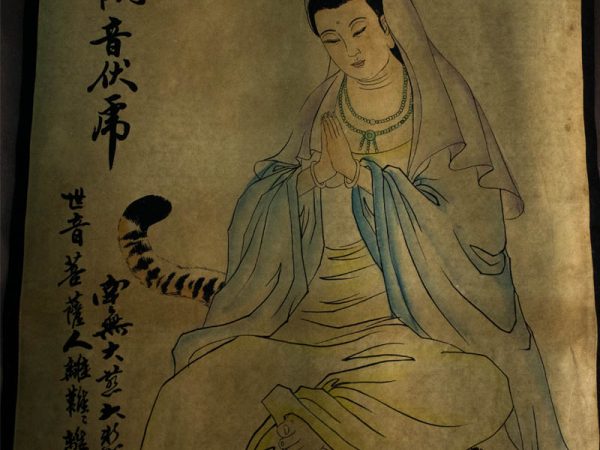 音伏虎
南無大慈大
世音菩薩人離難〻離